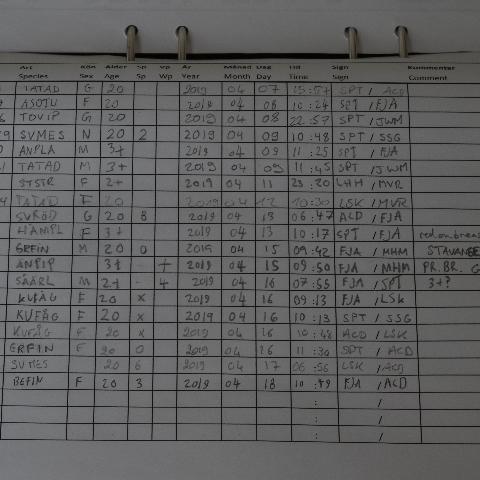 Art Kön Ålder Sp Vp År Månad Dag Tid Sign Kommentar
Species Sex Age Sp Wp Year Month Day Time Sign Comment
TATAD G 20 2019 04 07 SPT / ACD
ASOTU F 20 2019 04 08 10:24 SPT / FJA
TOVIP G 20 2019 04 08 22:57 SPT / JWM
SVMES N 20 2 2019 04 09 10:48 SPT / SSG
ANPLA M 3+ 2019 04 09 11:25 SPT / FJA
TATAD M 3+ 2019 04 09 11:45 SPT / JWM
STSTR F 2+ 2019 04 11 23:20 LHM / MVR
TATAD F 20 2019 04 12 10:30 LSK / MVR
SVRÖD G 20 8 2019 04 13 06:47 ACD / FJA
HAMPL F 3+ 2019 04 13 10:17 SPT / FJA
GRFIN M 20 0 2019 04 15 09:42 FJA / MHM
ÄNPIP 3+ - + 2019 04 15 09:50 FJA / MHM PR. BR.
SÄÄRL M 2+ - 4 2019 04 16 07:55 FJA / SPT 3+?
KUFÅG F 20 x 2019 04 16 09:13 FJA / LSK
KUFÅG F 20 x 2019 04 16 10:13 SPT / SSG
KUFÅG F 20 x 2019 04 16 10:48 ACD / LSK
GRFIN F 20 0 2019 04 16 11:30 SPT / ACD
SVMES 20 6 2019 04 17 06:56 LSK / ACD
BEFIN F 20 3 2019 04 18 FJA / ACD
: /
: /
: /